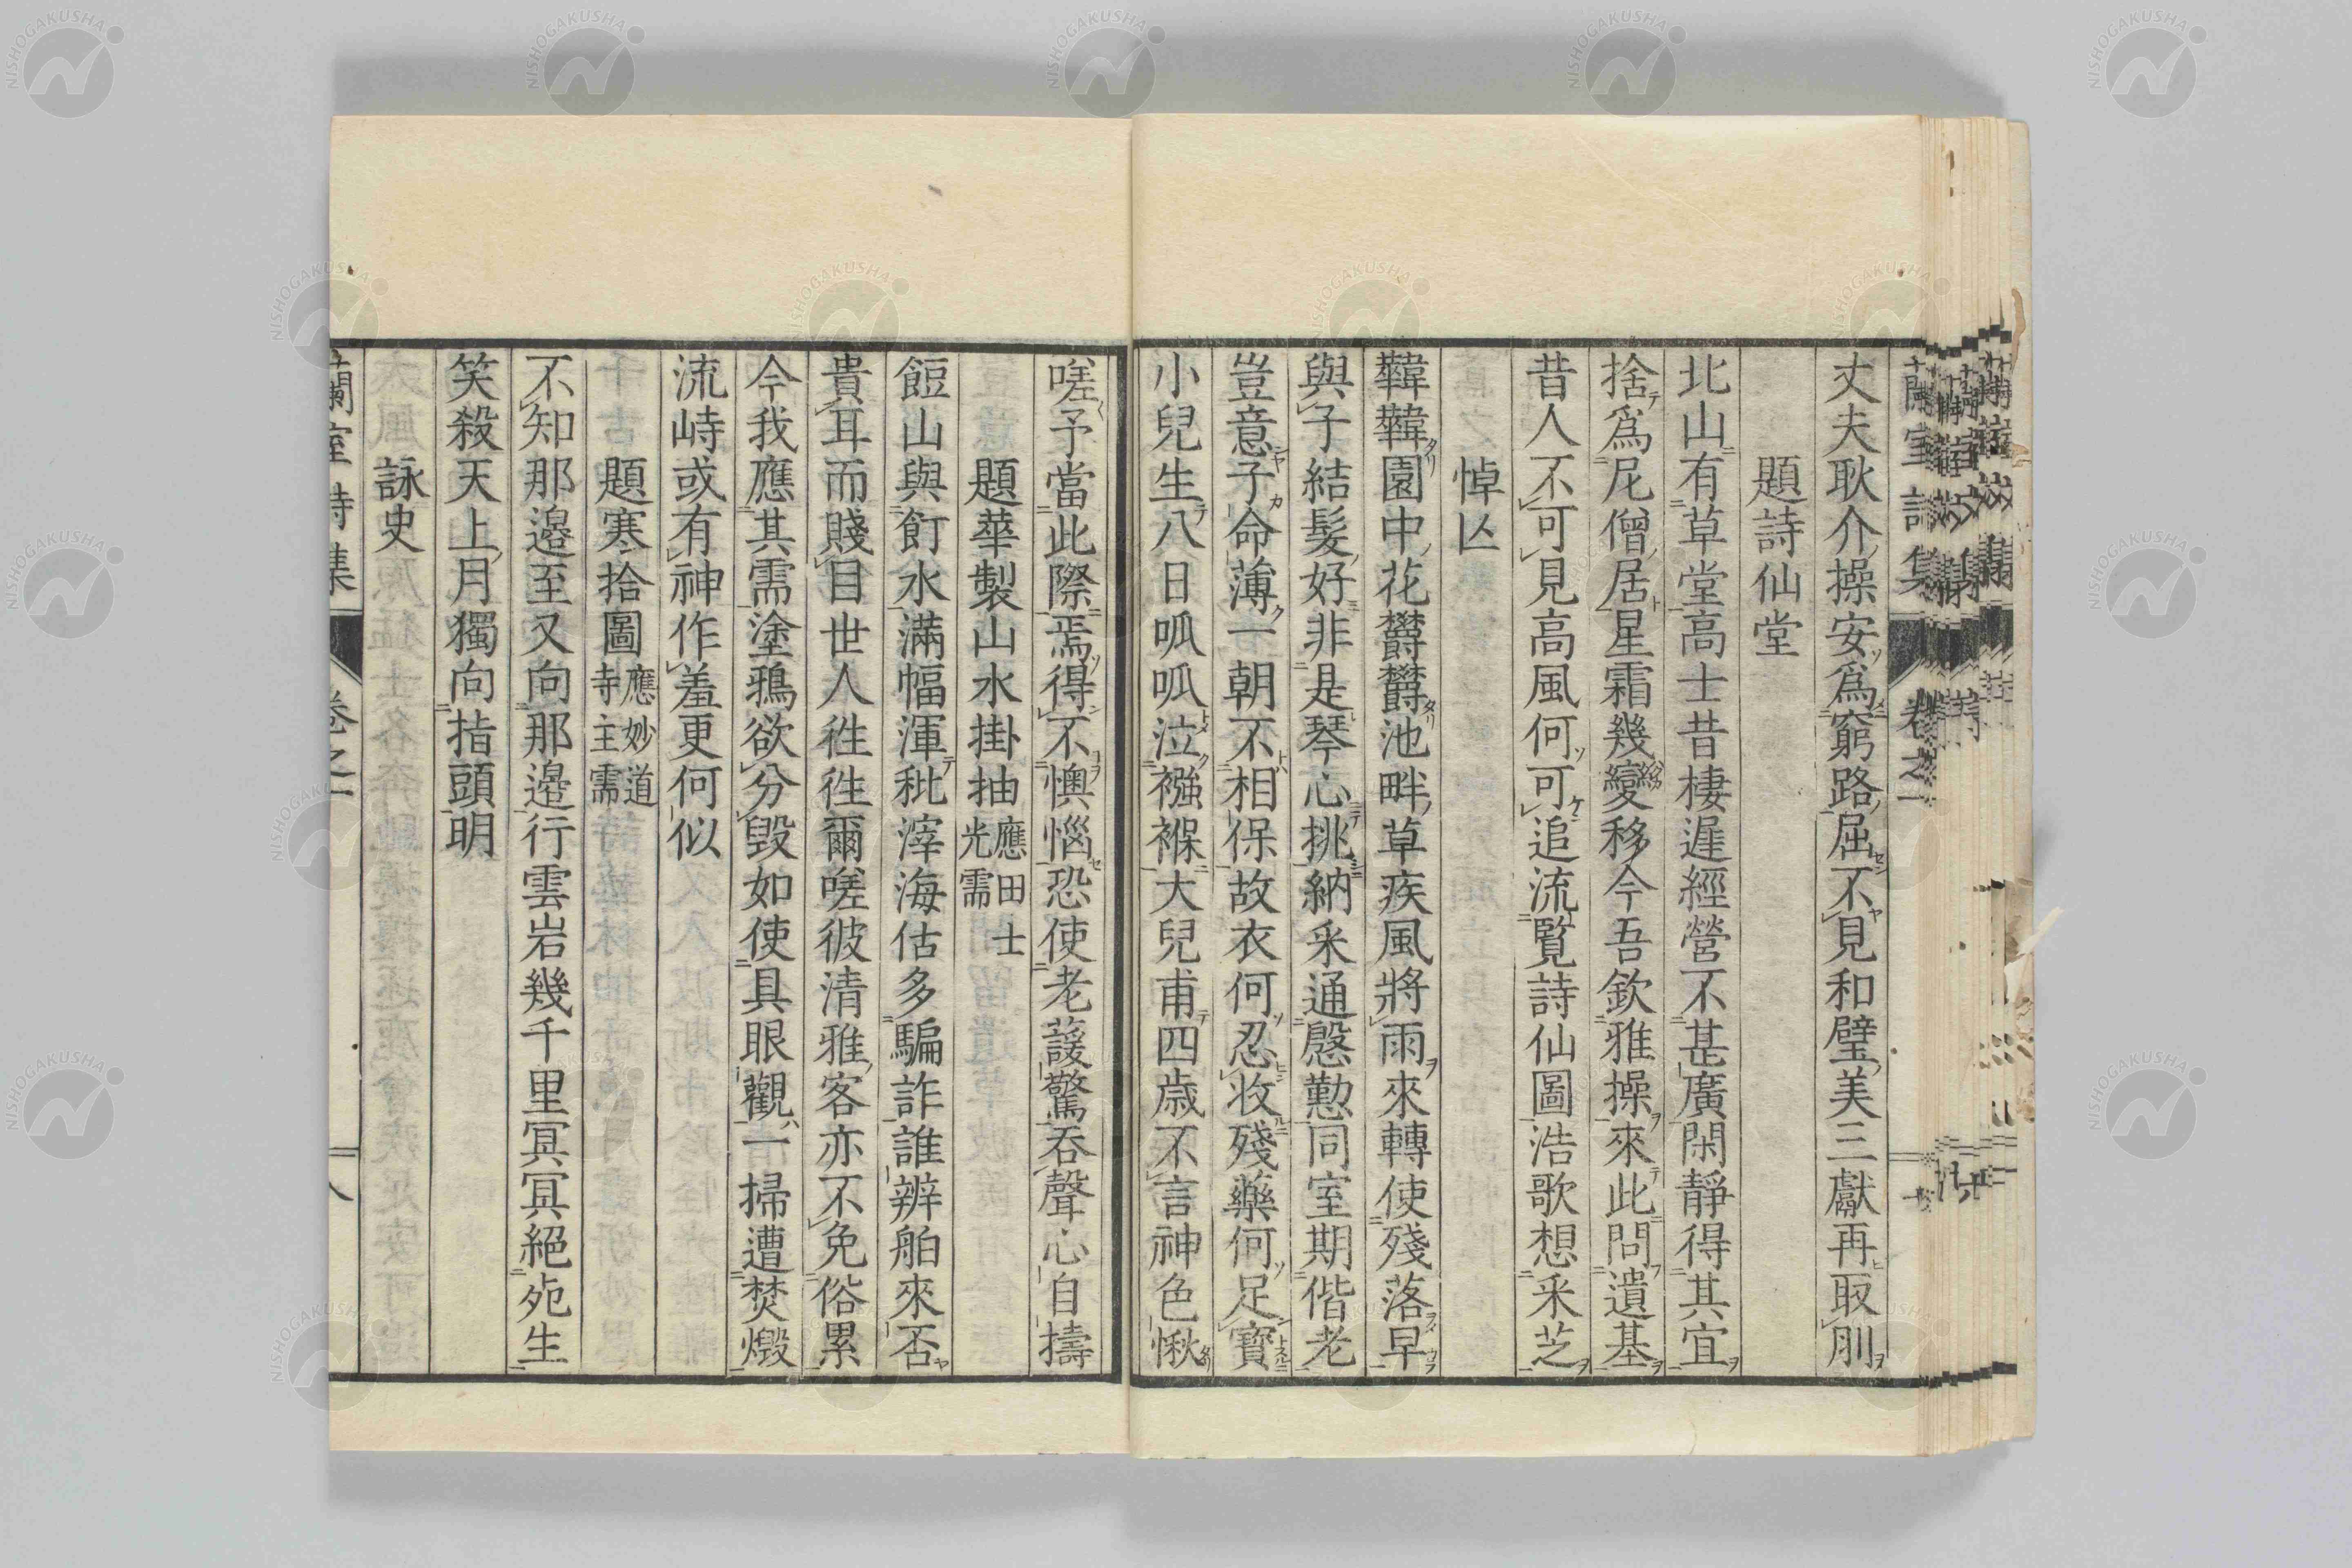 丈夫耿介操安爲窮路屈不見和璧美三獻再取刖
題詩仙堂
北山有草堂高士昔棲遲經營不甚廣閑靜得其宜
捨爲尼僧居星霜幾變移今吾欽雅操來此問遺基
昔人不可見高風何可追流覧詩仙圖浩歌想采芝
悼亾
韡韡園中花欝欝池畔草疾風將雨來轉使殘落早
與子結髮好非是琴心挑納采通慇懃同室期偕老
豈意子命薄一朝不相保故衣何忍收殘藥何足寳
小兒生八日呱呱泣襁褓大兒甫四歳不言神色愀
嗟予當此際焉得不懊惱恐使老諼驚吞聲心自擣
題華製山水掛抽應田士光需
餖山與飣水滿幅渾秕滓海估多騙詐誰辨舶來否
貴耳而賤目世人徃徃爾嗟彼清雅客亦不免俗累
今我應其需塗鴉欲分毀如使具眼觀一掃遭焚燬
流峙或有神作羞更何似
題寒拾圖應妙道寺主需
不知那邉至又向那邉行雲岩幾千里冥冥絕死生
笑殺天上月獨向指頭明
詠史
蘭室詩集 卷之一 八
蘭室詩集 卷之一
NISHOGAKUSHA